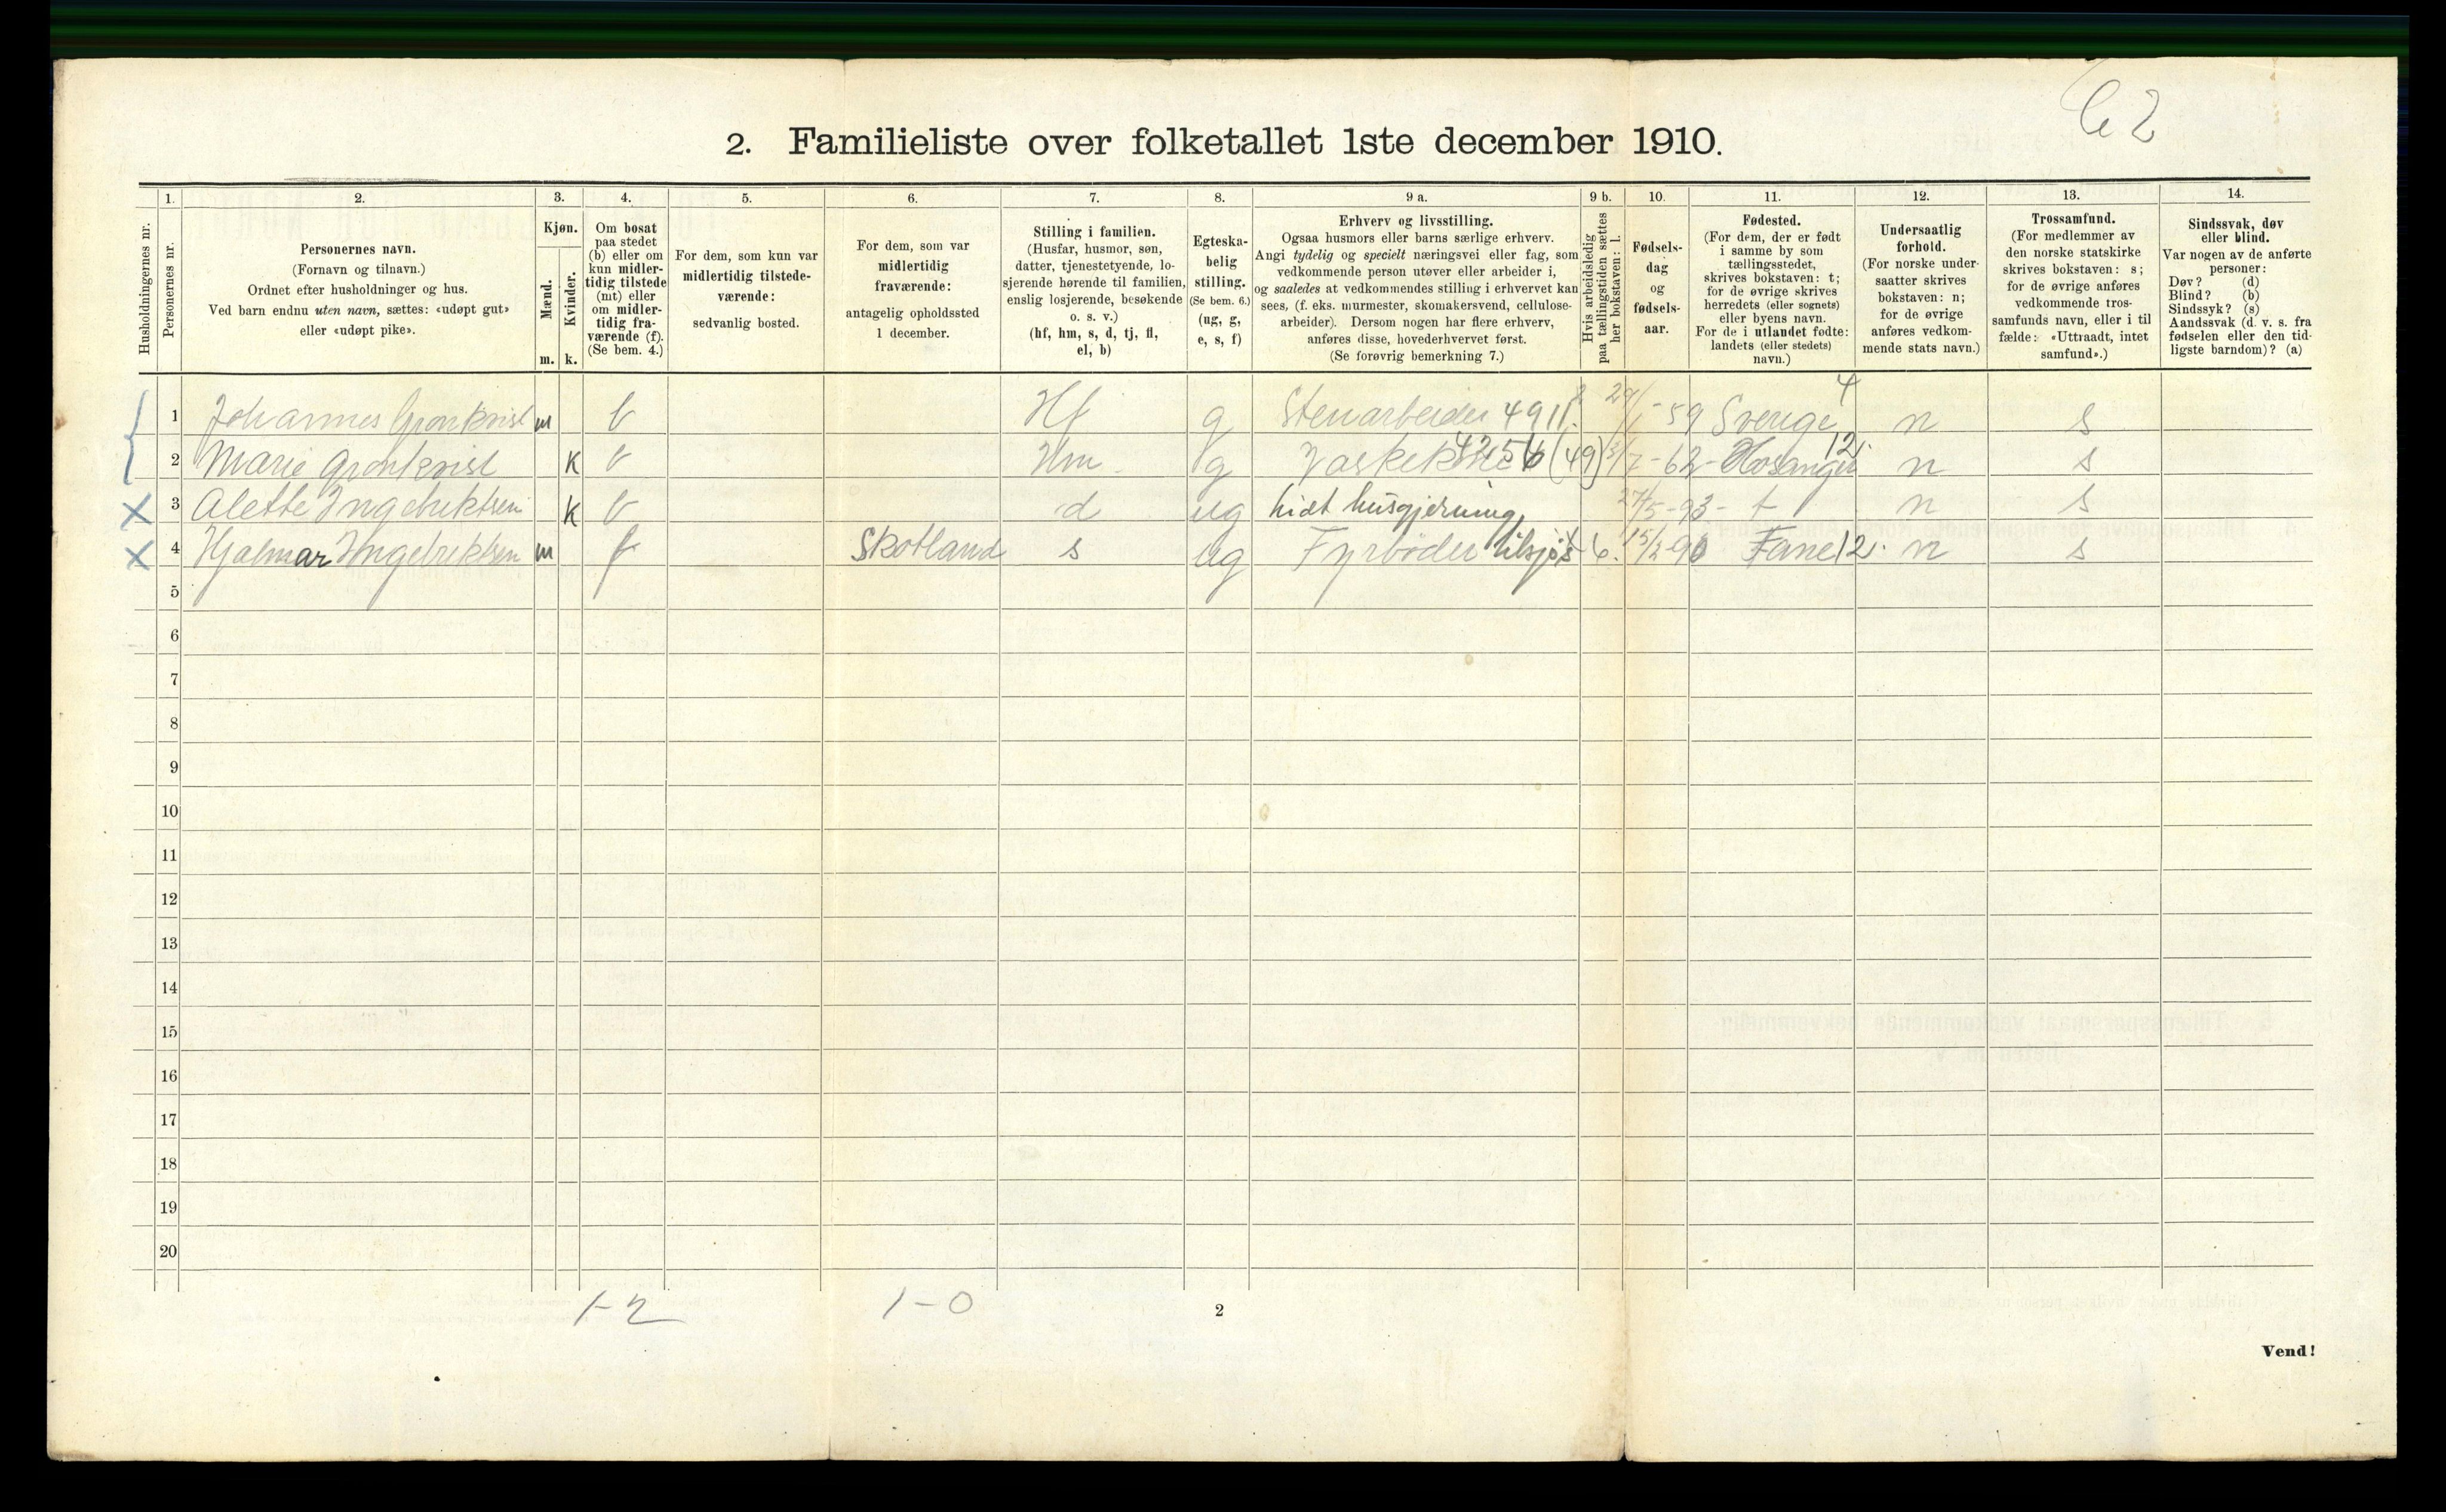 C 2
2. Familieliste over folketallet 1ste december 1910.
1. 2. 3. 4. 5. 6. 7. 8. 9 a. 9 b. 10. 11. 12. 13. 14.
Husholdningernes nr.
Personernes nr.
Personernes navn.
(Fornavn og tilnavn.)
Ordnet efter husholdninger og hus.
Ved barn endnu uten navn, sættes: «udøpt gut»
eller «udøpt pike».
Kjøn.
Mænd.
m.
Kvinder.
k.
Om bosat
paa stedet
(b) eller om
kun midler-
tidig tilstede
(mt) eller
om midler-
tidig fra-
værende (f).
(Se bem. 4.)
For dem, som kun var
midlertidig tilstede-
værende:
sedvanlig bosted.
For dem, som var
midlertidig
fraværende:
antagelig opholdssted
1 december.
Stilling i familien.
(Husfar, husmor, søn,
datter, tjenestetyende, lo-
sjerende hørende til familien,
enslig losjerende, besøkende
o. s. v.)
(hf, hm, s, d, tj, fl,
el, b)
Egteska-
belig
stilling.
(Se bem. 6.)
(ug, g,
e, s, f)
Erhverv og livsstilling.
Ogsaa husmors eller barns særlige erhverv.
Angi tydelig og specielt næringsvei eller fag, som
vedkommende person utøver eller arbeider i,
og saaledes at vedkommendes stilling i erhvervet kan
sees, (f. eks. murmester, skomakersvend, cellulose-
arbeider). Dersom nogen har flere erhverv,
anføres disse, hovederhvervet først.
(Se forøvrig bemerkning 7.)
Hvis arbeidsledig
paa tællingstiden sættes
her bokstaven: l.
Fødsels-
dag
og
fødsels-
aar.
Fødested.
(For dem, der er født
i samme by som
tællingsstedet,
skrives bokstaven: t;
for de øvrige skrives
herredets (eller sognets)
eller byens navn.
For de i utlandet fødte:
landets (eller stedets)
navn.)
Undersaatlig
forhold.
(For norske under-
saatter skrives
bokstaven: n;
for de øvrige
anføres vedkom-
mende stats navn.)
Trossamfund.
(For medlemmer av
den norske statskirke
skrives bokstaven: s;
for de øvrige anføres
vedkommende tros-
samfunds navn, eller i til
fælde: «Uttraadt, intet
samfund».)
Sindssvak, døv
eller blind.
Var nogen av de anførte
personer:
Døv? (d)
Blind? (b)
Sindssyk? (s)
Aandssvak (d. v. s. fra
fødselen eller den tid-
ligste barndom)? (a)
1 Johannes Gronkvist m b Hf g Stenarbeider 4911. 29/1-59 Sverige 4 n s
2 Marie Gronkvist k b Hm g Vaskekone (49) /7-62 Hosanger 12. n s
X 3 Alette Ingebriktsen k b d ug hidt husgjerning 27/5-93 t n s
X 4 Hjalmar Ingebriktsen m f Skotland s ug Fyrbøder tilsjøs 6. 15/2-90 Fane 12. n s
5
6
7
8
9
10
11
12
13
14
15
16
17
18
19
20
1-2 1-0
2
Vend!